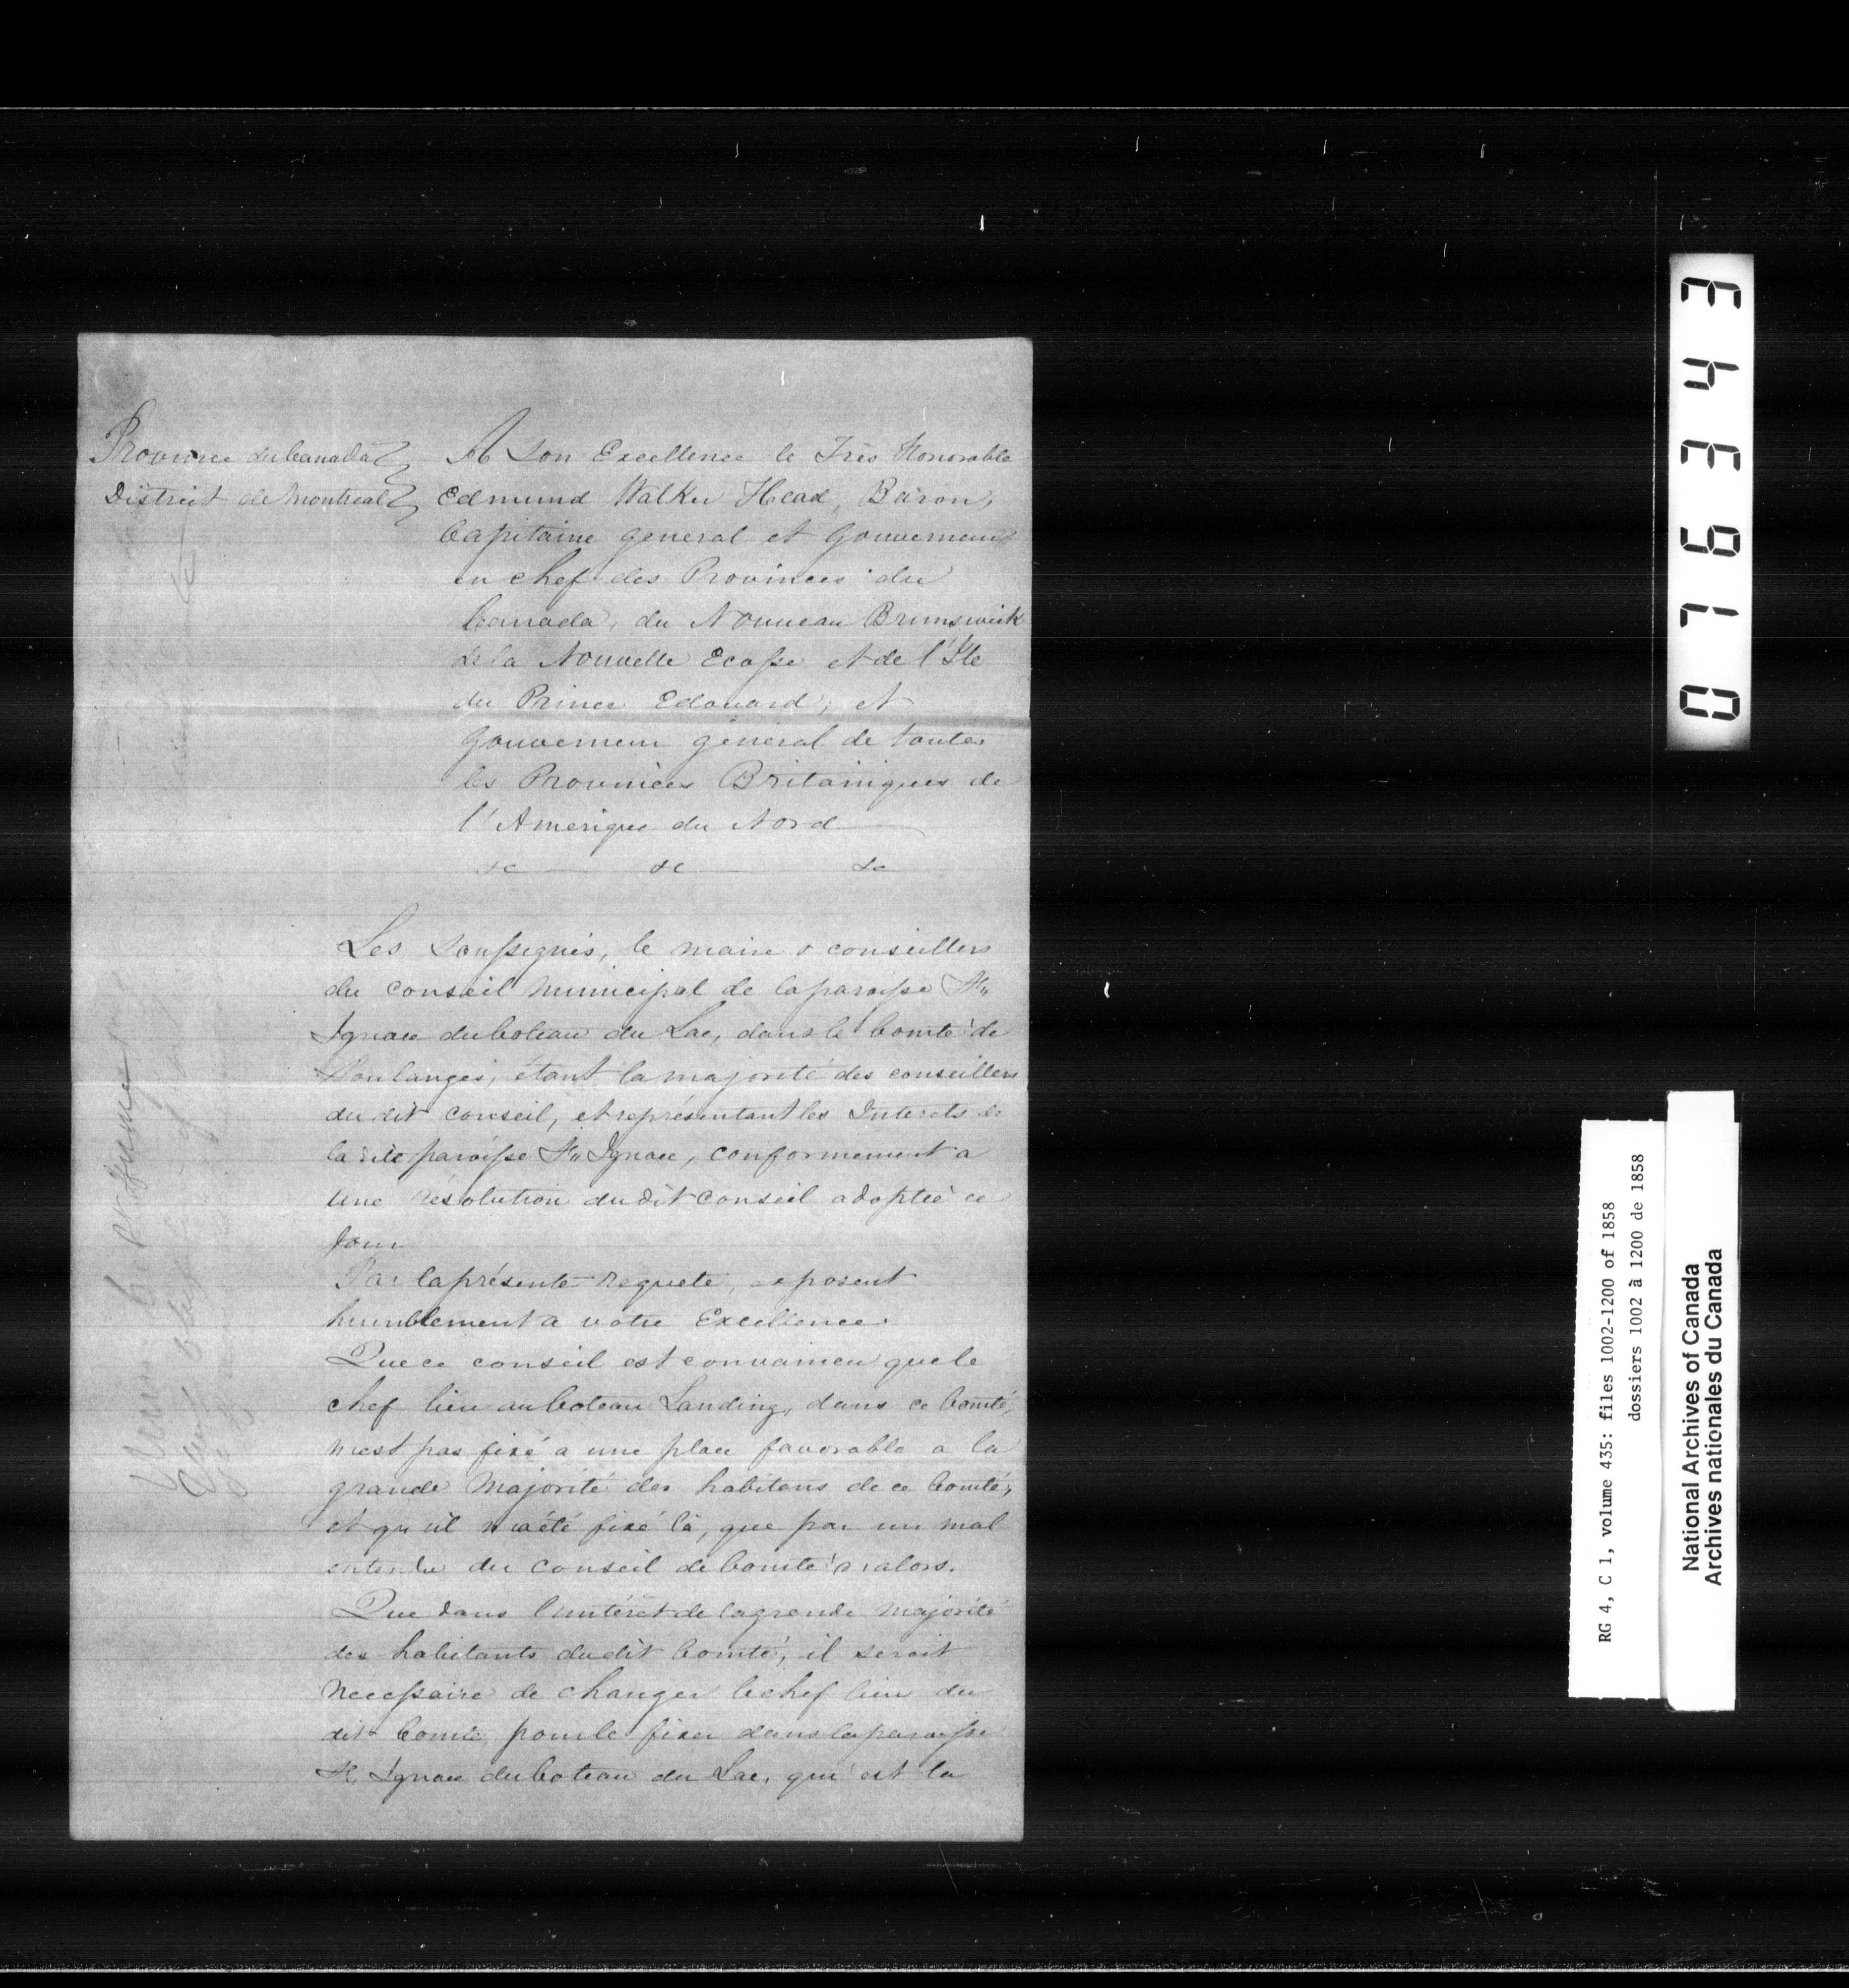 Province du Canada
District de Montreal
A Son Excellence le Très Honorable
Edmund Walker Head, Baron,
Capitaine general et Gouverneur
en chef des Provinces du
Canada, du Nouveau Brunswick
de la Nouvelle Ecosse et de l'Ile
du Prince Edouard, et
Gouverneur général de toutes
les Provinces Britaniques de
l'Amerique du Nord
&c &c &c
Les Soussignés, le maire & conseillers
du conseil municipal de la paroisse St
Ignace du Coteau du Lac, dans le Comté de
Soulanges, étant la majorité des conseillers
du dit conseil, et représentant les Interets de
la dite paroisse St Ignace, conformement a
une résolution du dit conseil adoptée ce
jour
Par la présente requete, exposent
humblement a votre Excellence.
Que ce conseil est convaincu que le
chef lieu au Coteau Landing, dans ce Comté,
n'est pas fixé a une place favorable a la
grande Majorité des habitans de ce Comté,
et qu'il n'a été fixé là, que par un mal
entendu du conseil de Comté d'alors.
Que dans l'intérêt de la grande majorité
des habitants du dit Comté, il serait
necessaire de changer le chef lieu du
dit Comté, pour le fixer dans la paroisse
St Ignace du Coteau du Lac, qui est la
076343
RG 4, C 1, volume 435: files 1002-1200 of 1858
dossiers 1002 à 1200 de 1858
National Archives of Canada
Archives nationales du Canada